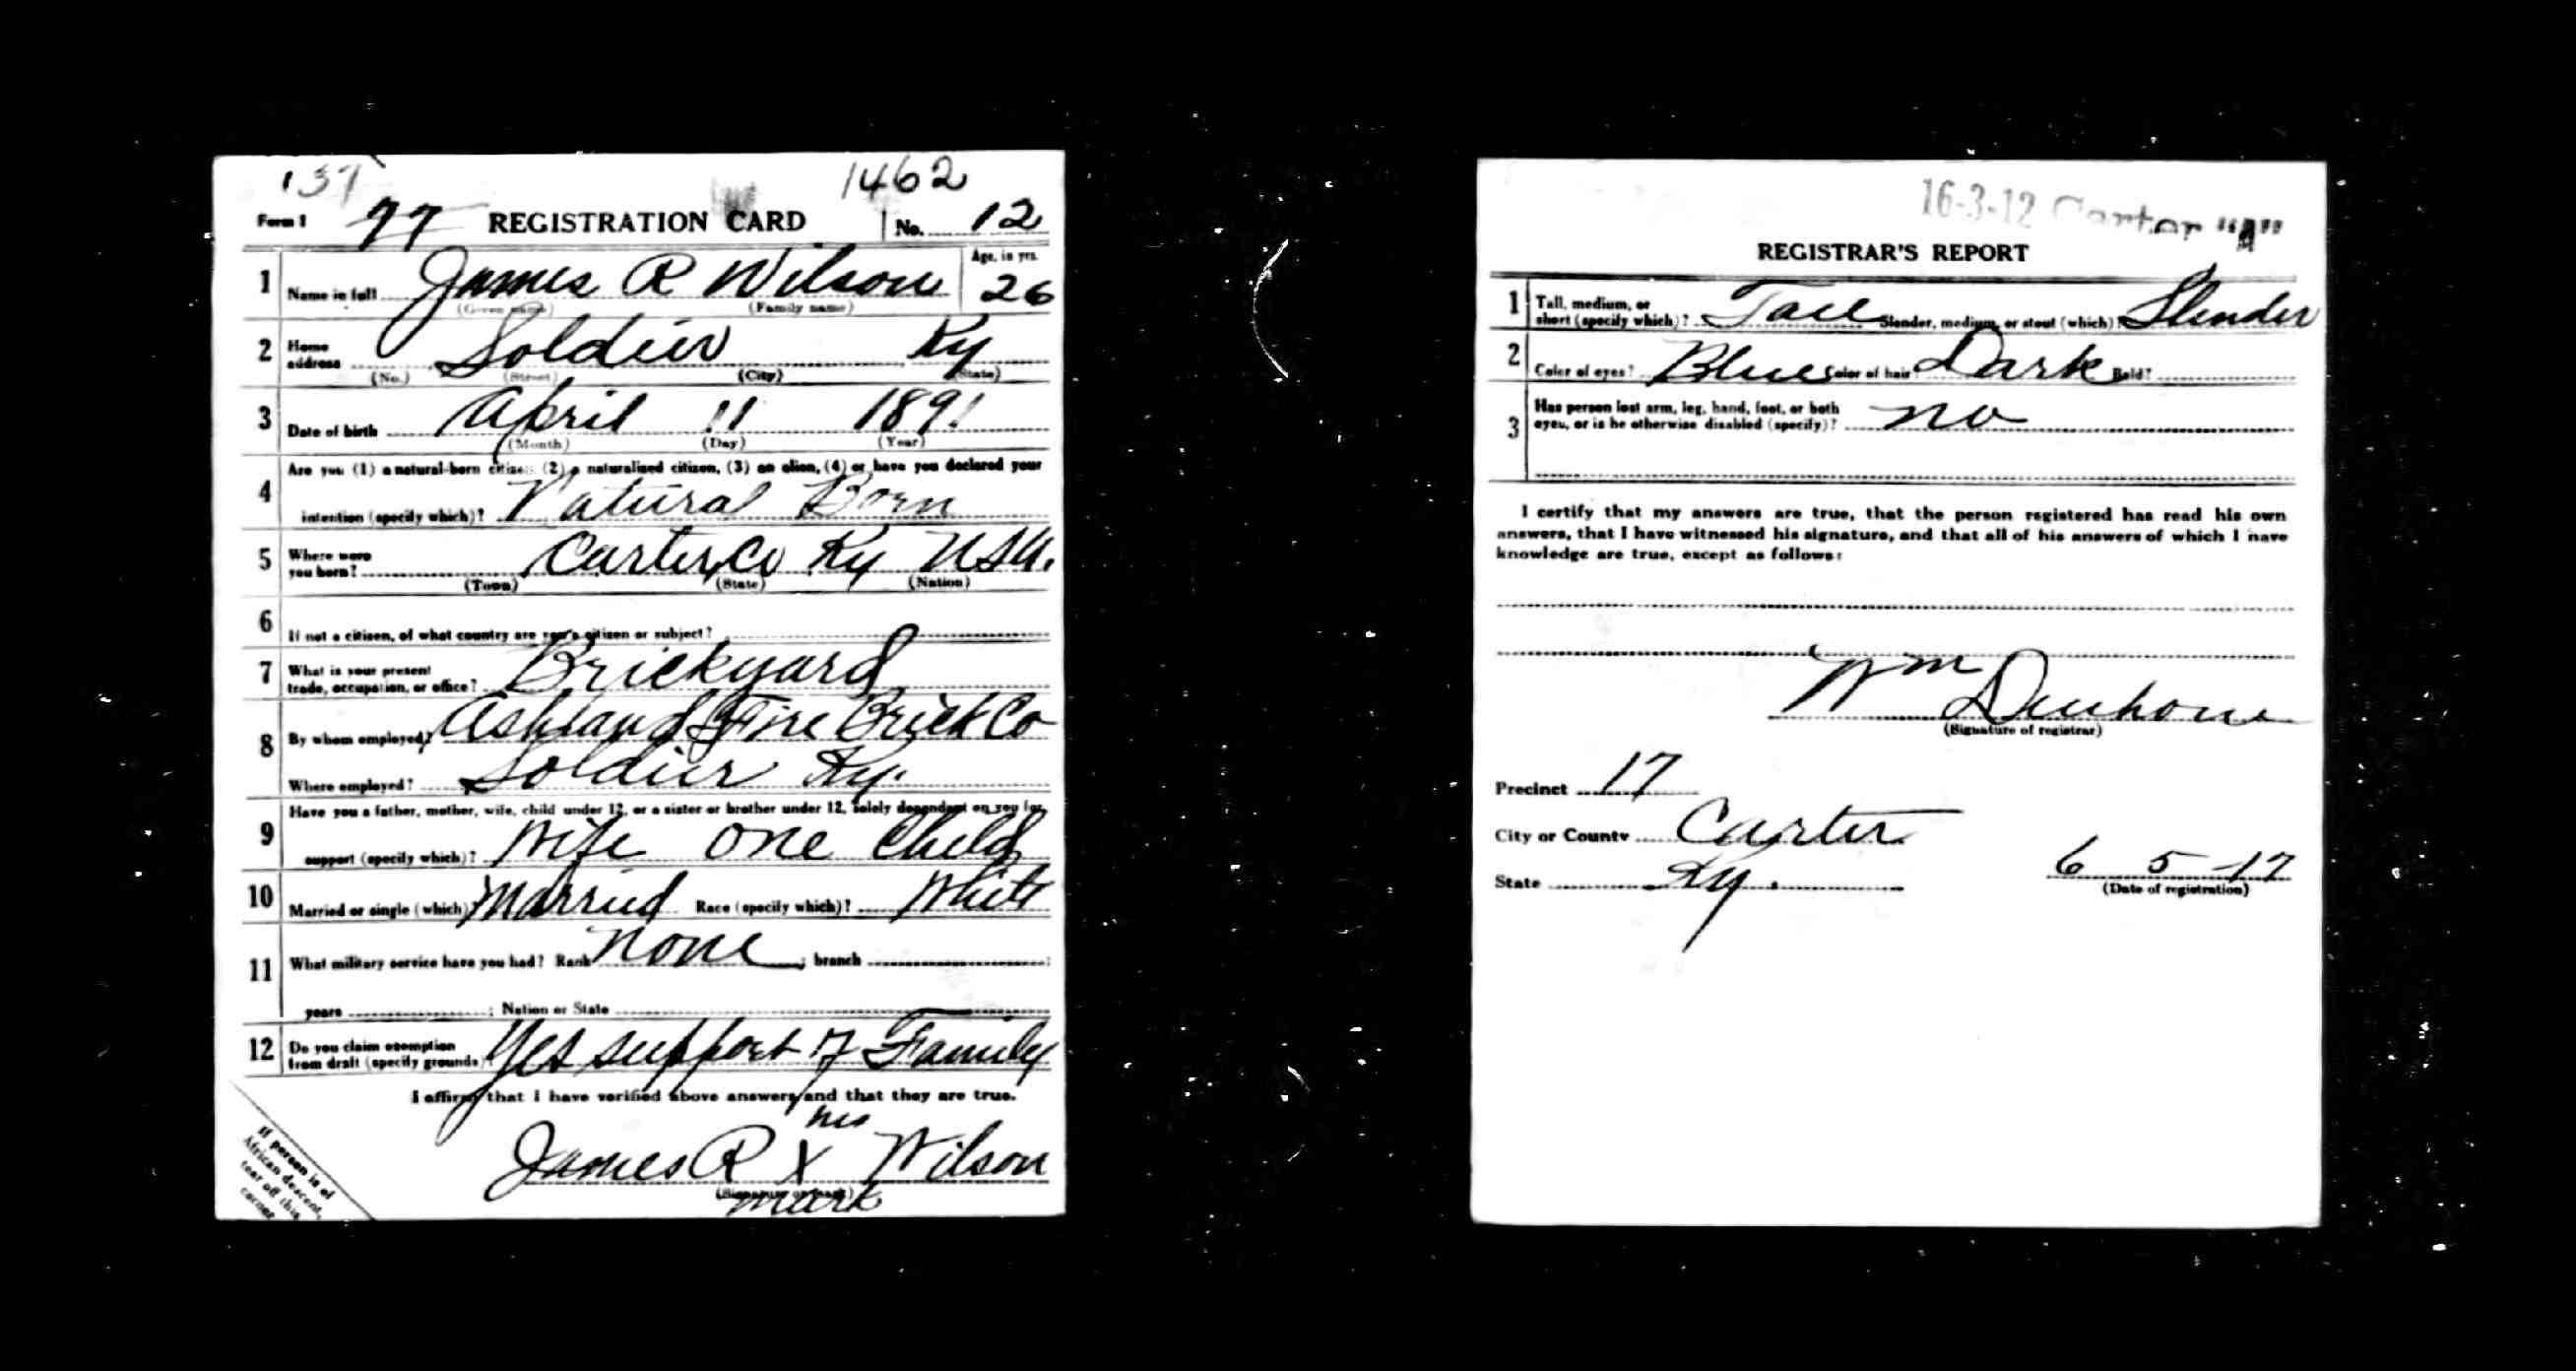 137 1462
Form 1 77 REGISTRATION CARD No. 12
1 Name in full James R Wilson Age, in yrs. 26
(Given name) (Family name)
2 Home address Soldier Ky
(No.) (Street) (City) (State)
3 Date of birth April 11 1891
(Month) (Day) (Year)
4 Are you (1) a natural-born citizen, (2) a naturalized citizen, (3) an alien, (4) or have you declared your
intention (specify which)? Natural Born
5 Where were you born? Carter Co Ky USA.
(Town) (State) (Nation)
6 If not a citizen, of what country are you a citizen or subject?
7 What is your present trade, occupation, or office? Brickyard
8 By whom employed? Ashland Fire Brick Co
Where employed? Soldier Ky.
9 Have you a father, mother, wife, child under 12, or a sister or brother under 12, solely dependent on you for
support (specify which)? Wife one Child
10 Married or single (which)? Married Race (specify which)? White
11 What military service have you had? Rank None ; branch ;
years ; Nation or State
12 Do you claim exemption from draft (specify grounds)? Yes support of Family
I affirm that I have verified above answers and that they are true.
his
James R X Wilson
(Signature or mark)
mark
If person is of
African descent,
tear off this
corner
16-3-12 Carter "A"
REGISTRAR'S REPORT
1 Tall, medium, or short (specify which)? Tall Slender, medium, or stout (which)? Slender
2 Color of eyes? Blue Color of hair? Dark Bald?
3 Has person lost arm, leg, hand, foot, or both
eyes, or is he otherwise disabled (specify)? no
I certify that my answers are true, that the person registered has read his own
answers, that I have witnessed his signature, and that all of his answers of which I have
knowledge are true, except as follows:
Wm
(Signature of registrar)
Precinct 17
City or County Carter
State Ky. 6 5 -17
(Date of registration)